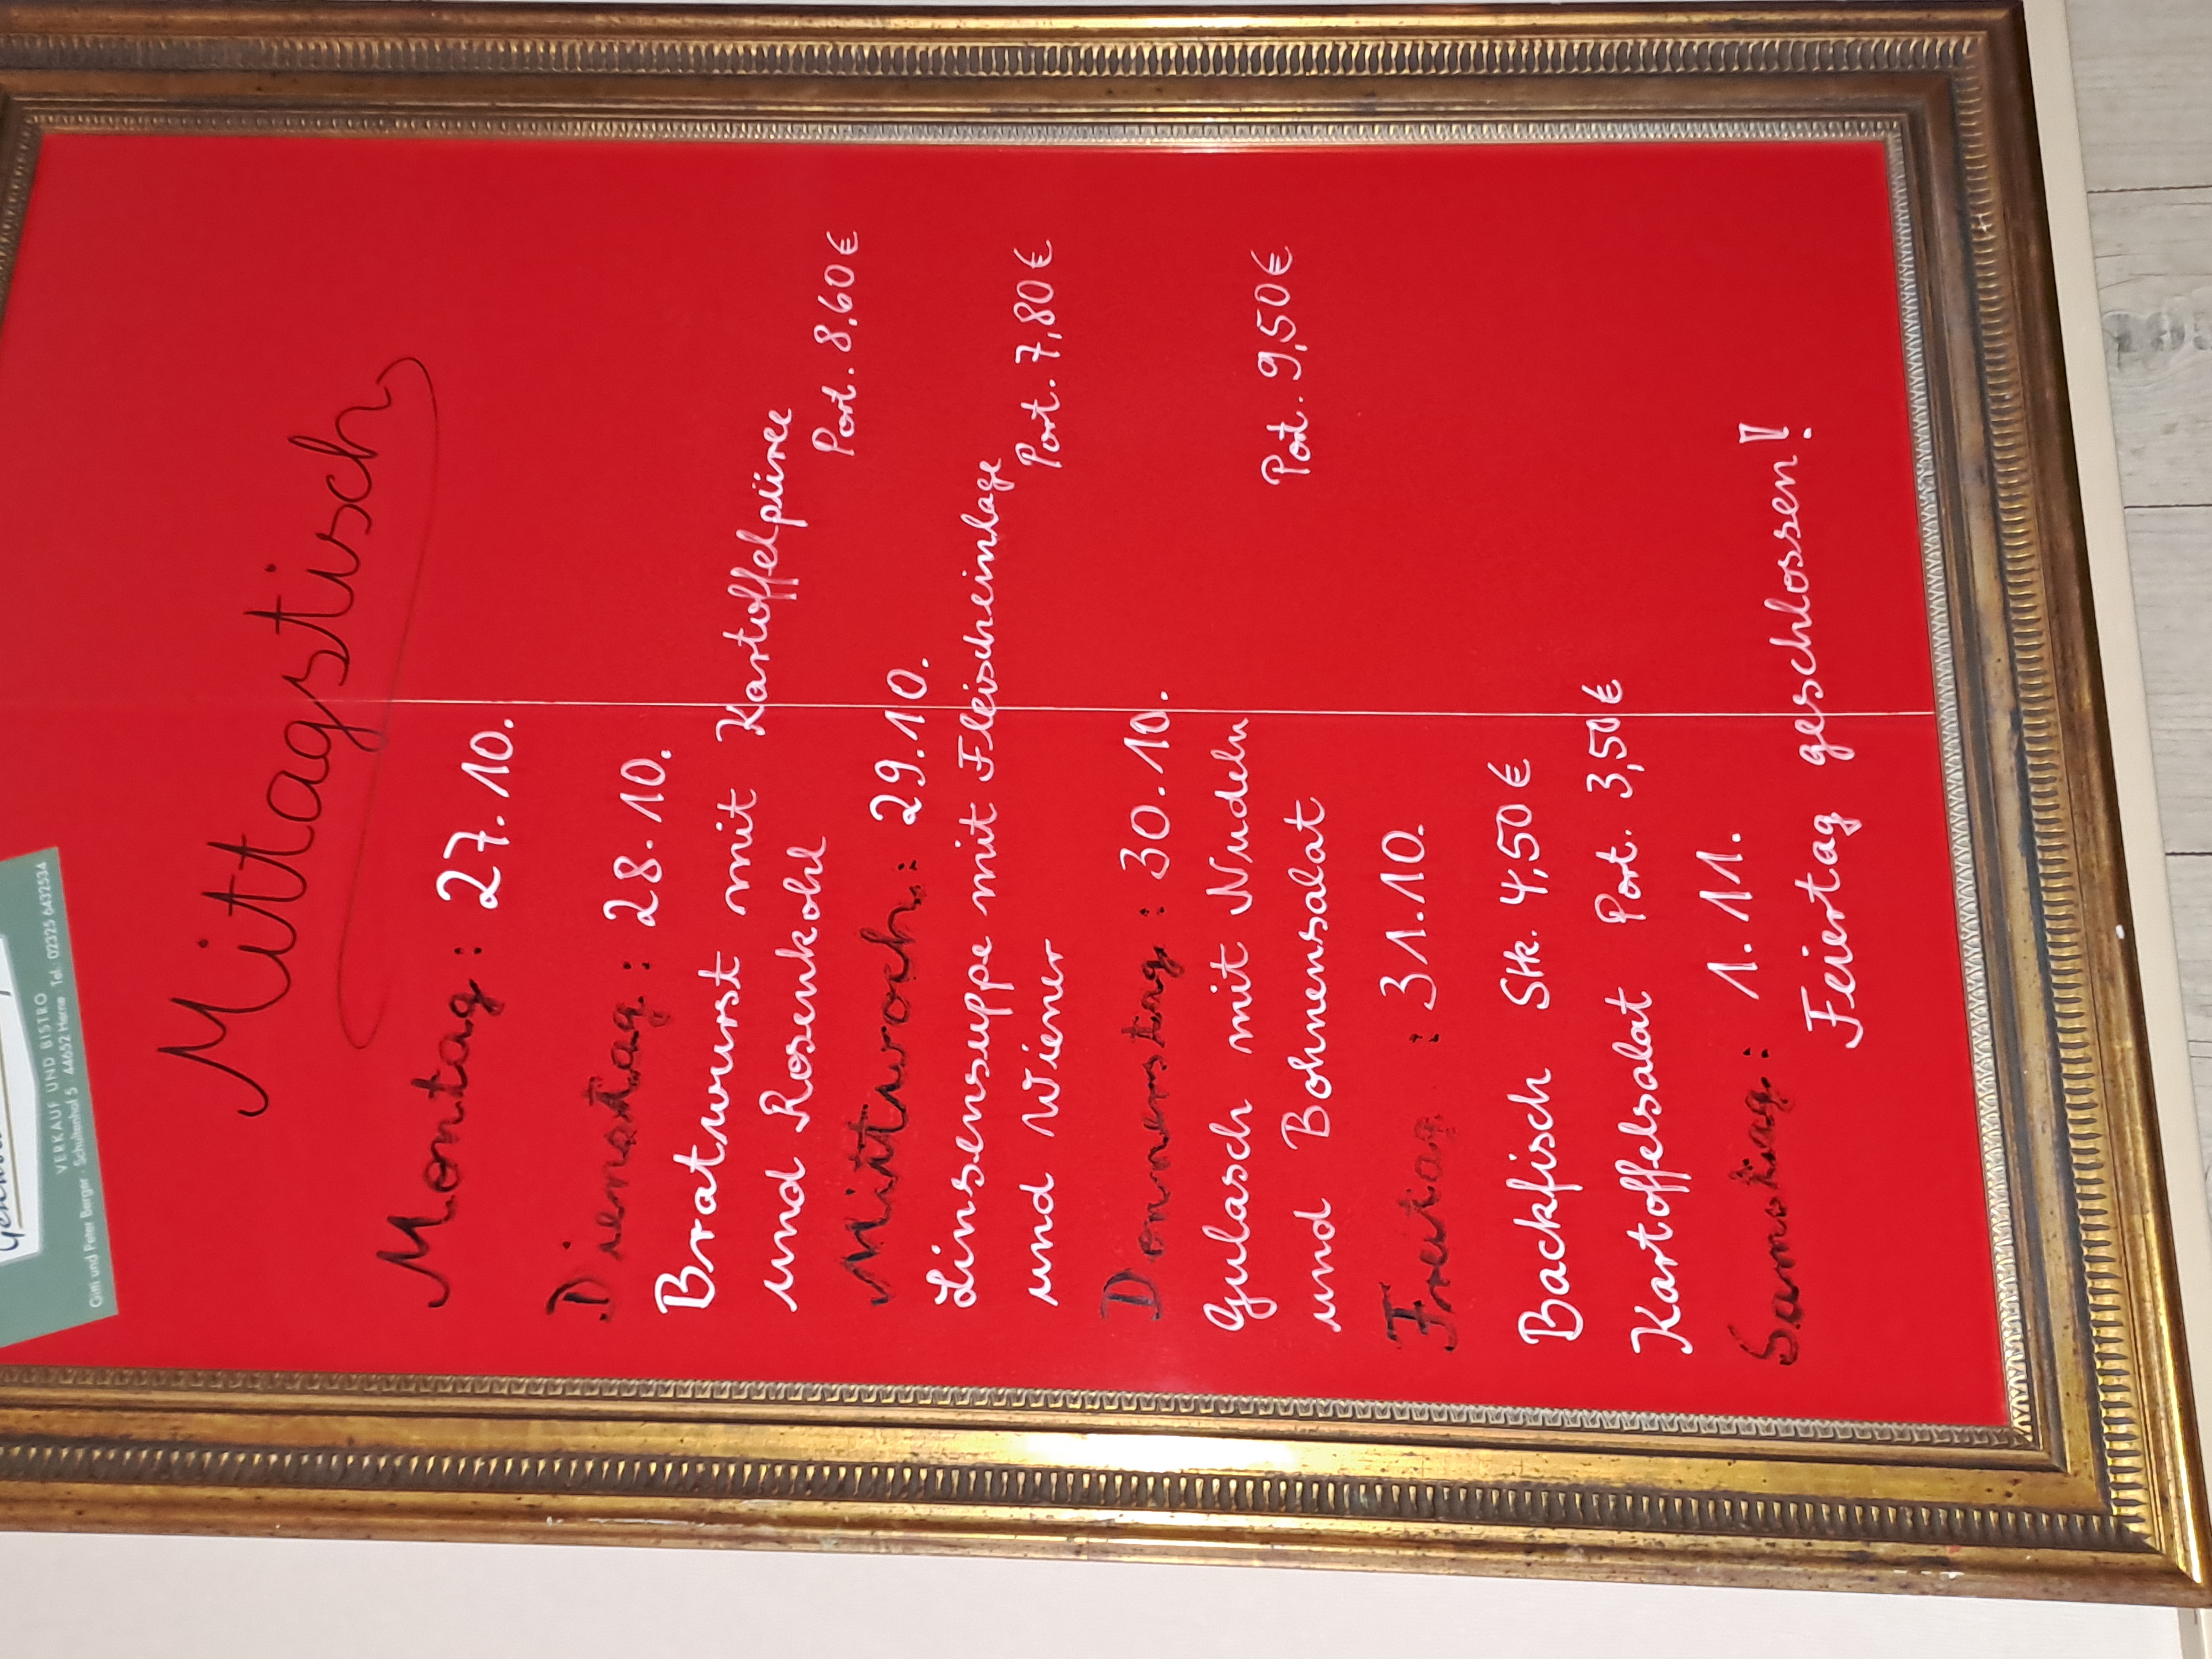 VERKAUF UND BISTRO
Gitti und Peter Berger · Schultenhof 5 44652 Herne Tel.: 02325 6432534
Mittagstisch
Montag : 27.10.
Dienstag : 28.10.
Bratwurst mit Kartoffelpüree
und Rosenkohl Port. 8,60€
Mittwoch : 29.10.
Linsensuppe mit Fleischeinlage
und Wiener Port. 7,80€
Donnerstag : 30.10.
Gulasch mit Nudeln
und Bohnensalat Port. 9,50€
Freitag : 31.10.
Backfisch Stk. 4,50€
Kartoffelsalat Port. 3,50€
Samstag : 1.11.
Feiertag geschlossen!